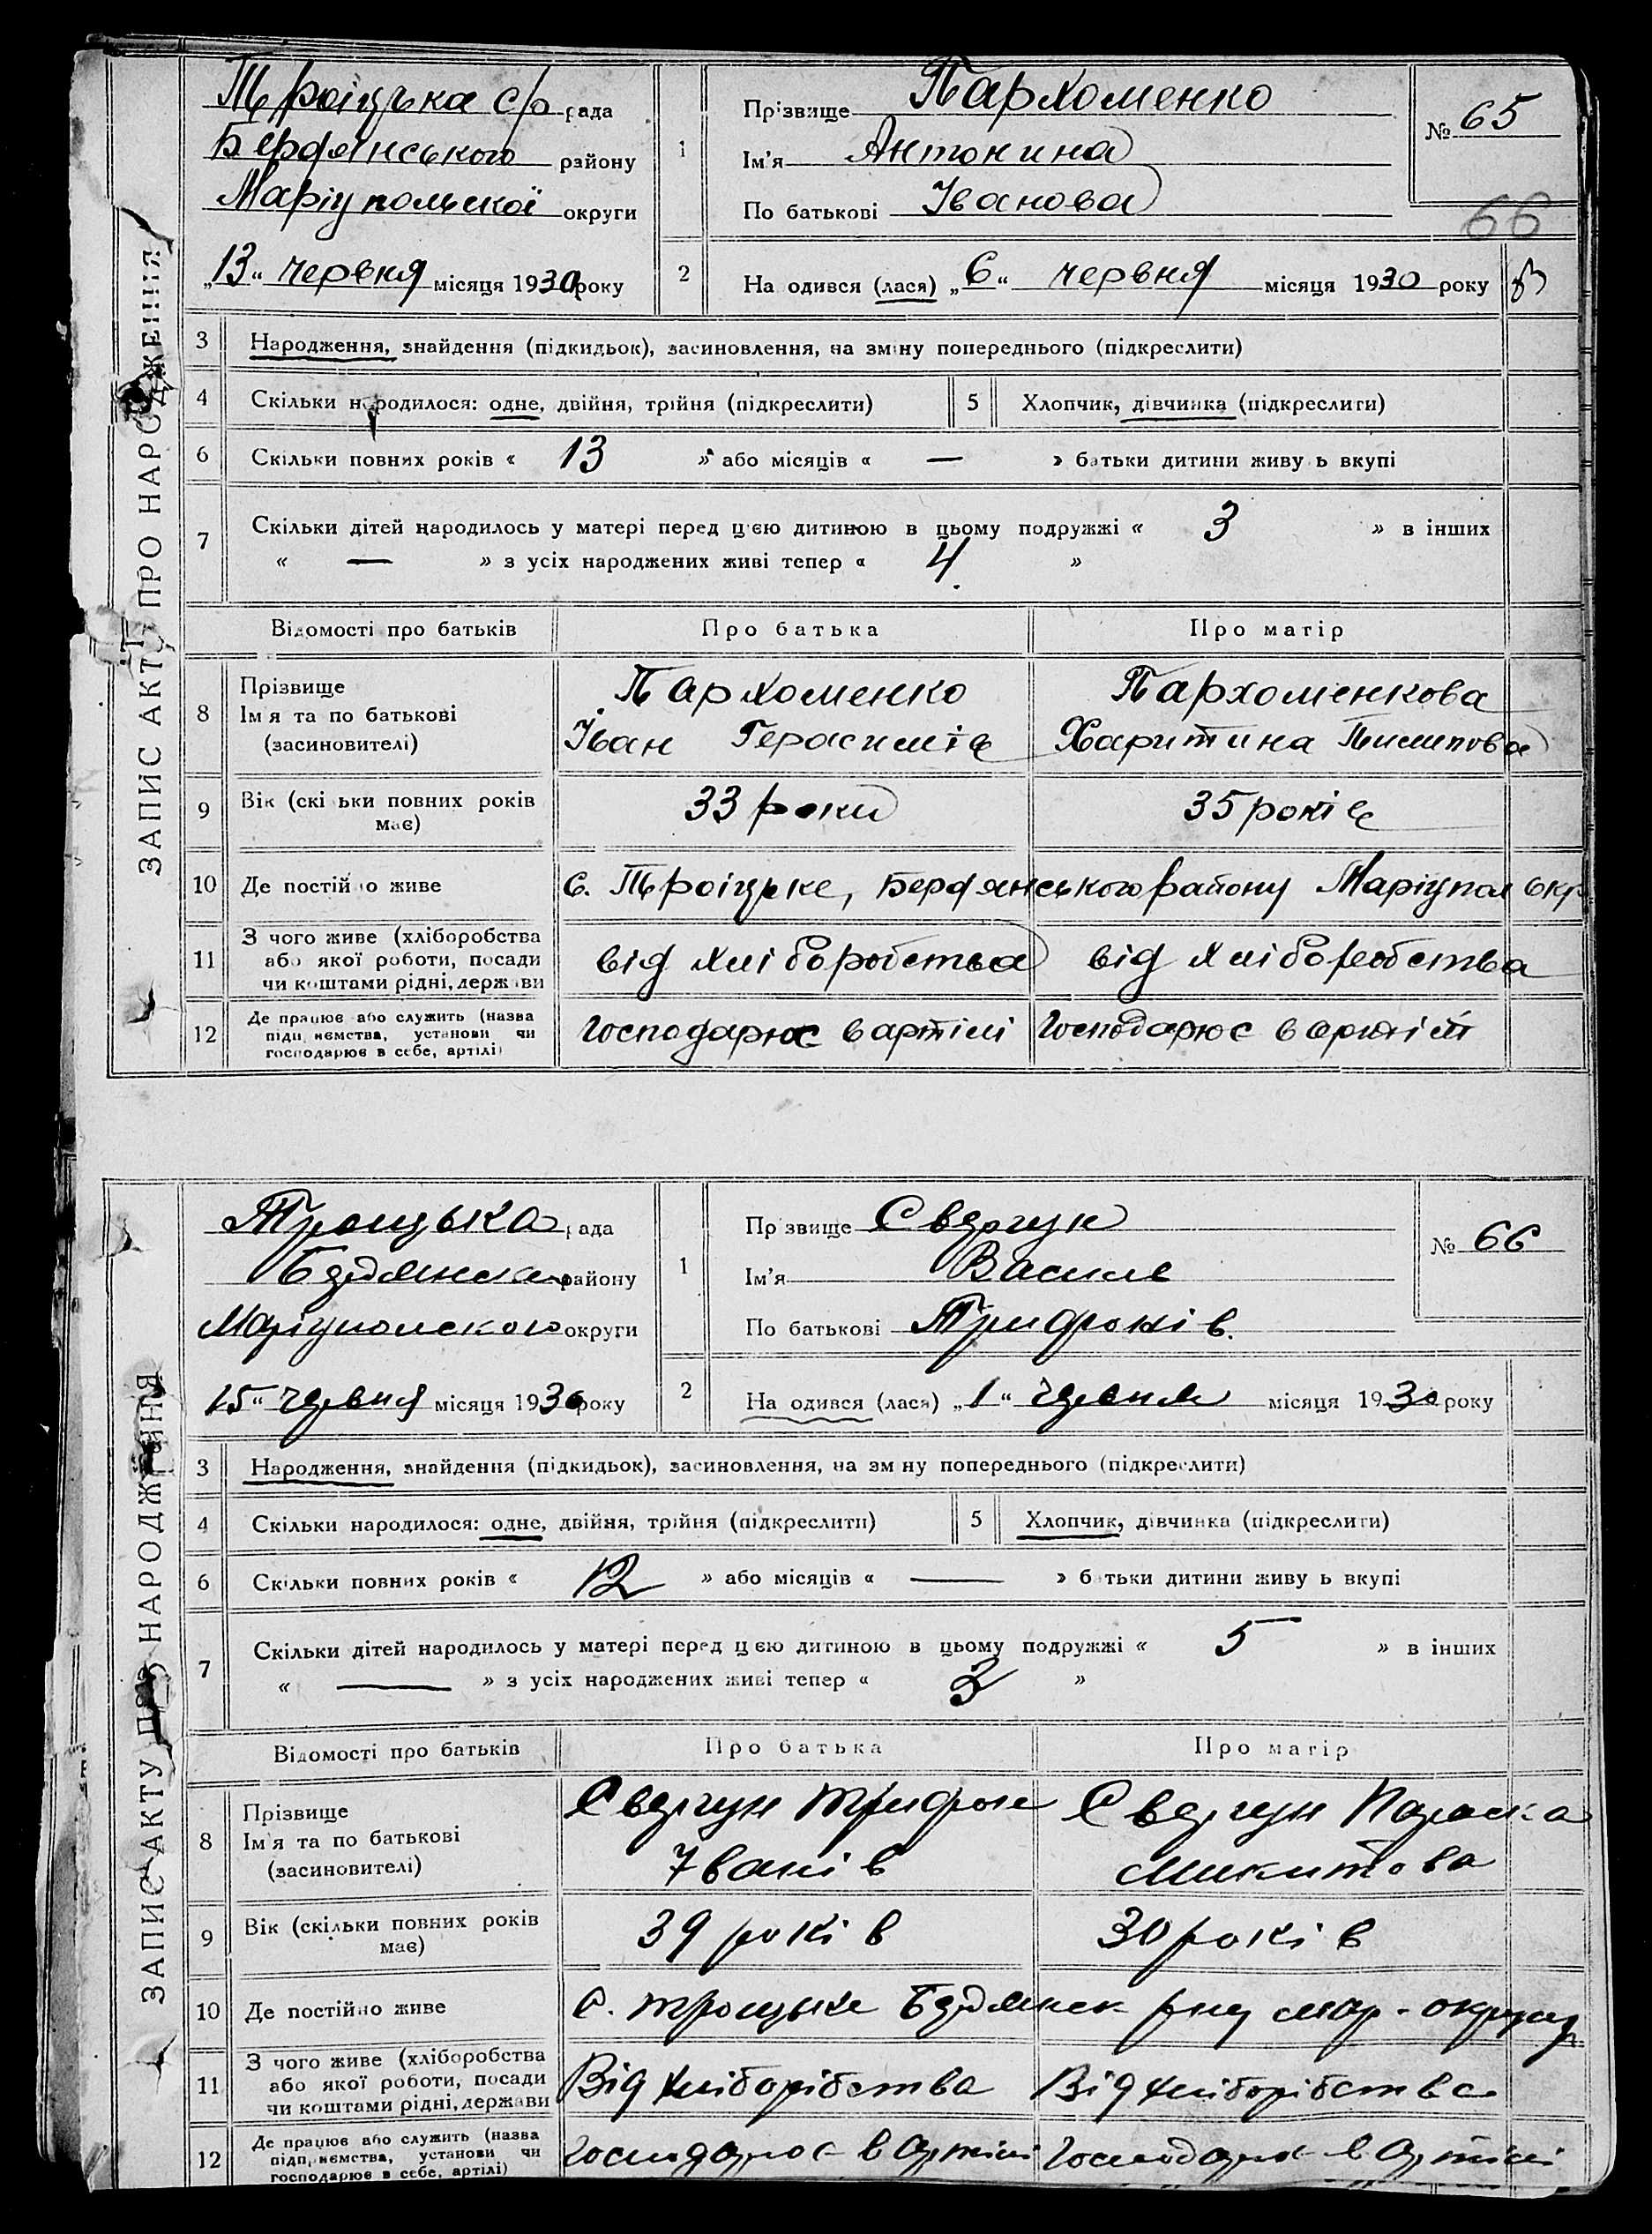 ЗАПИС АКТУ ПРО НАРОДЖЕННЯ
Троіцька с/р рада
Бердянського району
Маріупольскої округи
„13“ червня місяця 1930 року
1
Прізвище Пархоменко
Ім'я Антонина
По батькові Іванова
№ 65
66
2
На одився (лася) „6“ червня місяця 1930 року
3 Народження, знайдення (підкидьок), засиновлення, на зміну попереднього (підкреслити)
4 Скільки народилося: одне, двійня, трійня (підкреслити) 5 Хлопчик, дівчинка (підкреслити)
6 Скільки повних років « 13 » або місяців « — » батьки дитини живу ь вкупі
7 Скільки дітей народилось у матері перед цією дитиною в цьому подружжі « 3 » в інших
« — » з усіх народжених живі тепер « 4 »
Відомості про батьків Про батька Про матір
8 Прізвище Ім'я та по батькові (засиновителі)
Пархоменко Пархоменкова
Іван Герасимів Харитина Пилипова
9 Вік (скі ьки повних років має) 33 роки 35 років
10 Де постійно живе с. Троіцьке, Бердянського району Маріупол окр
11 З чого живе (хліборобства або якої роботи, посади чи коштами рідні, держави
від хліборобства від хліборобства
12 Де працює або служить (назва підприємства, установи чи господарює в себе, артілі)
Господарює в артілі Господарює в артілі
ЗАПИС АКТУ ПРО НАРОДЖЕННЯ
Троицька рада
району
Маріупольского округи
„15“ червня місяця 1930 року
1
Пр звище Свергун
Ім'я Василь
По батькові Трифонів.
№ 66
2
На одився (лася) „1“ червня місяця 1930 року
3 Народження, знайдення (підкидьок), засиновлення, на зм ну попереднього (підкреслити)
4 Скільки народилося: одне, двійня, трійня (підкреслити) 5 Хлопчик, дівчинка (підкреслити)
6 Скільки повних років « 12 » або місяців « — » б тьки дитини живу ь вкупі
7 Скільки дітей народилось у матері перед цією дитиною в цьому подружжі « 5 » в інших
« — » з усіх народжених живі тепер « 3 »
Відомості про батьків Про батька Про матір
8 Прізвище Ім'я та по батькові (засиновителі)
Свергун Трифон Свергун Параска
Іванів Микитова
9 Вік (скільки повних років має) 39 років 30 років
10 Де постійно живе с. Троицьке Бердянск рну мар - округи
11 З чого живе (хліборобства або якої роботи, посади чи коштами рідні, держави
Від хліборібства Від хліборібства
12 Де працює або служить (назва підприємства, установи чи господарює в себе, артілі)
Господарює в артілі Господарює в артілі